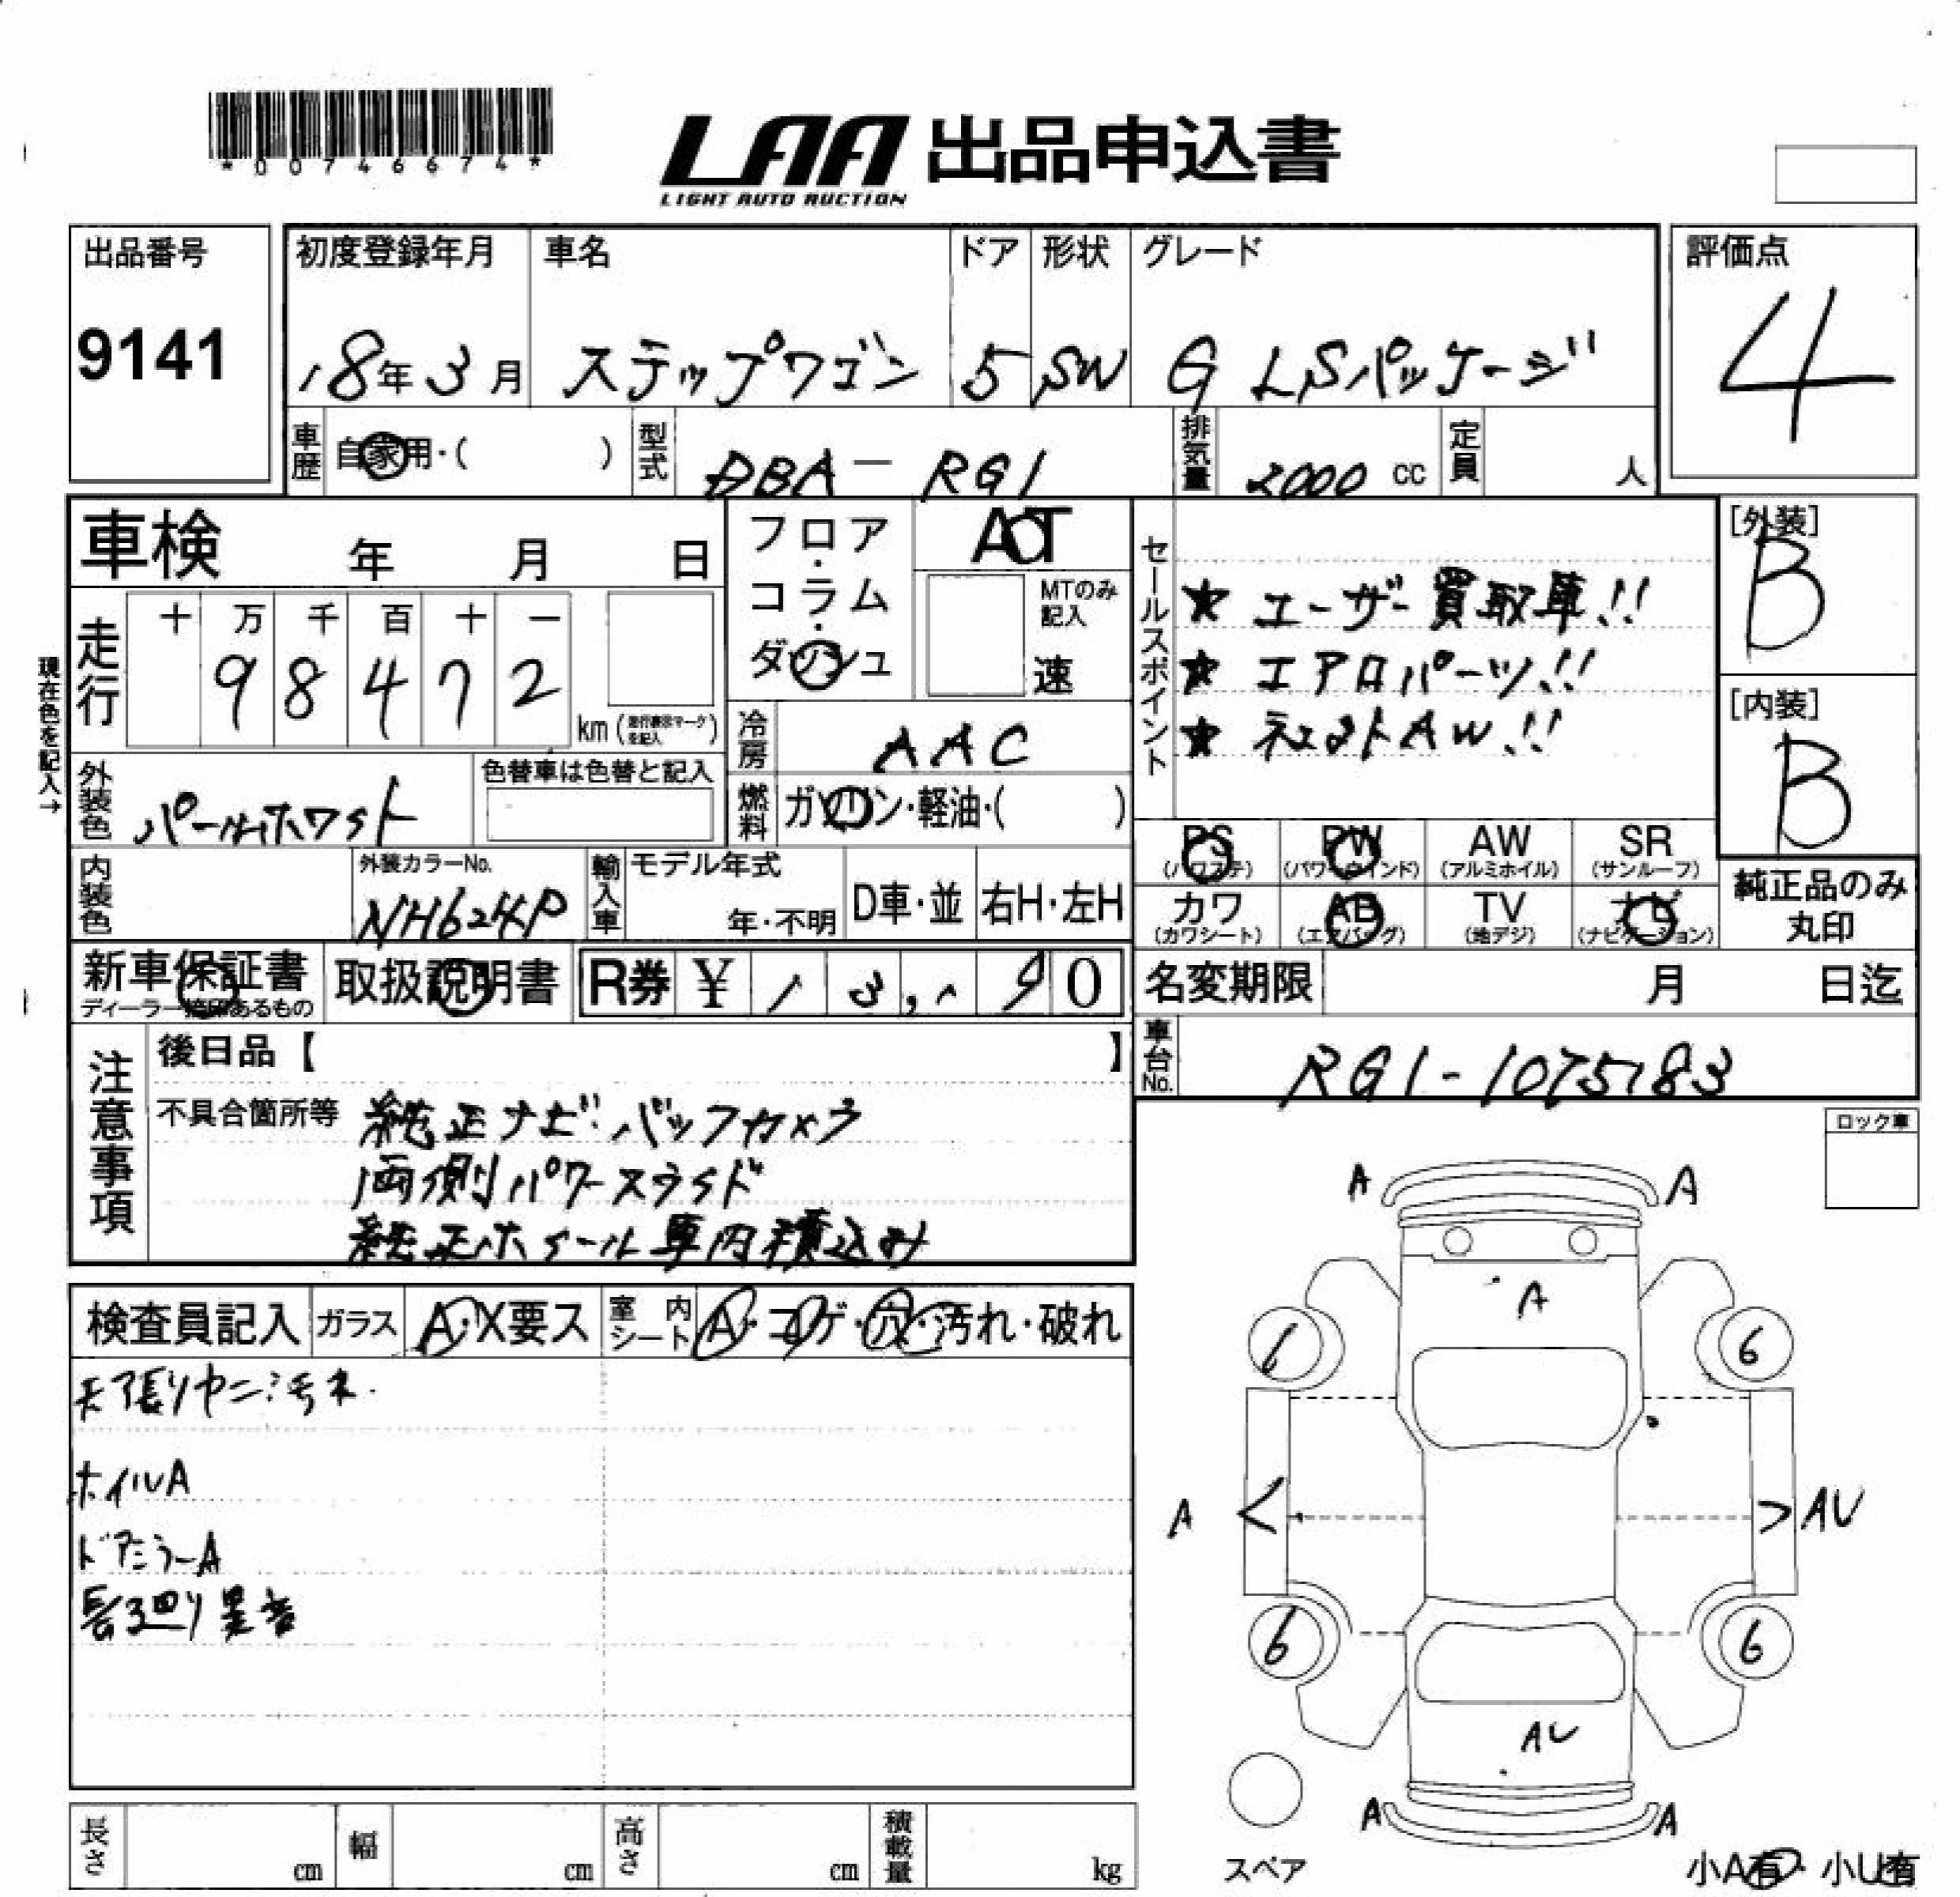 *0074667 4*
LAA 出品申込書
LIGHT AUTO AUCTION
出品番号
9141
初度登録年月 車名 ドア 形状 グレード
18年3月 ステップワゴン 5 SW G LSパッケージ
評価点
4
車歴 自家用・( ) 型式 DBA-RG1 排気量 2000 cc 定員 人
車検 年 月 日
フロア・コラム・ダッシュ
AT
MTのみ記入
速
セールスポイント
★ エーザー買取車!!
★ エアロパーツ!!
★ 社外AW!!
[外装]
B
[内装]
B
現在色を記入→
走行 十 万 千 百 十 一
98472
km (走行表示マークを記入)
冷房 AAC
外装色 パールホワイト
色替車は色替と記入
燃料 ガソリン・軽油・( )
PS (パワステ) PW (パワーウインド) AW (アルミホイル) SR (サンルーフ)
カワ (カワシート) AB (エアバッグ) TV (地デジ) ナビ (ナビゲーション)
純正品のみ丸印
内装色
外装カラーNo.
NH624P
輸入車 モデル年式
年・不明 D車・並 右H・左H
新車保証書
ディーラー捺印あるもの
取扱説明書
R券 ¥ 13,190
名変期限 月 日迄
車台No. RG1-1075183
注意事項
後日品【 】
不具合箇所等 純正ナビ・バックカメラ
両側パワースライド
純正ホイール車内積込み
ロック車
検査員記入 ガラス A・X要ス 室内シート A・コゲ・穴・汚れ・破れ
天張りヤニ汚れ.
ホイルA
ドアミラーA
長さ cm 幅 cm 高さ cm 積載量 kg
A A
A
6 6
A < > AU
6 6
AU
A A
スペア
小A有・小U有